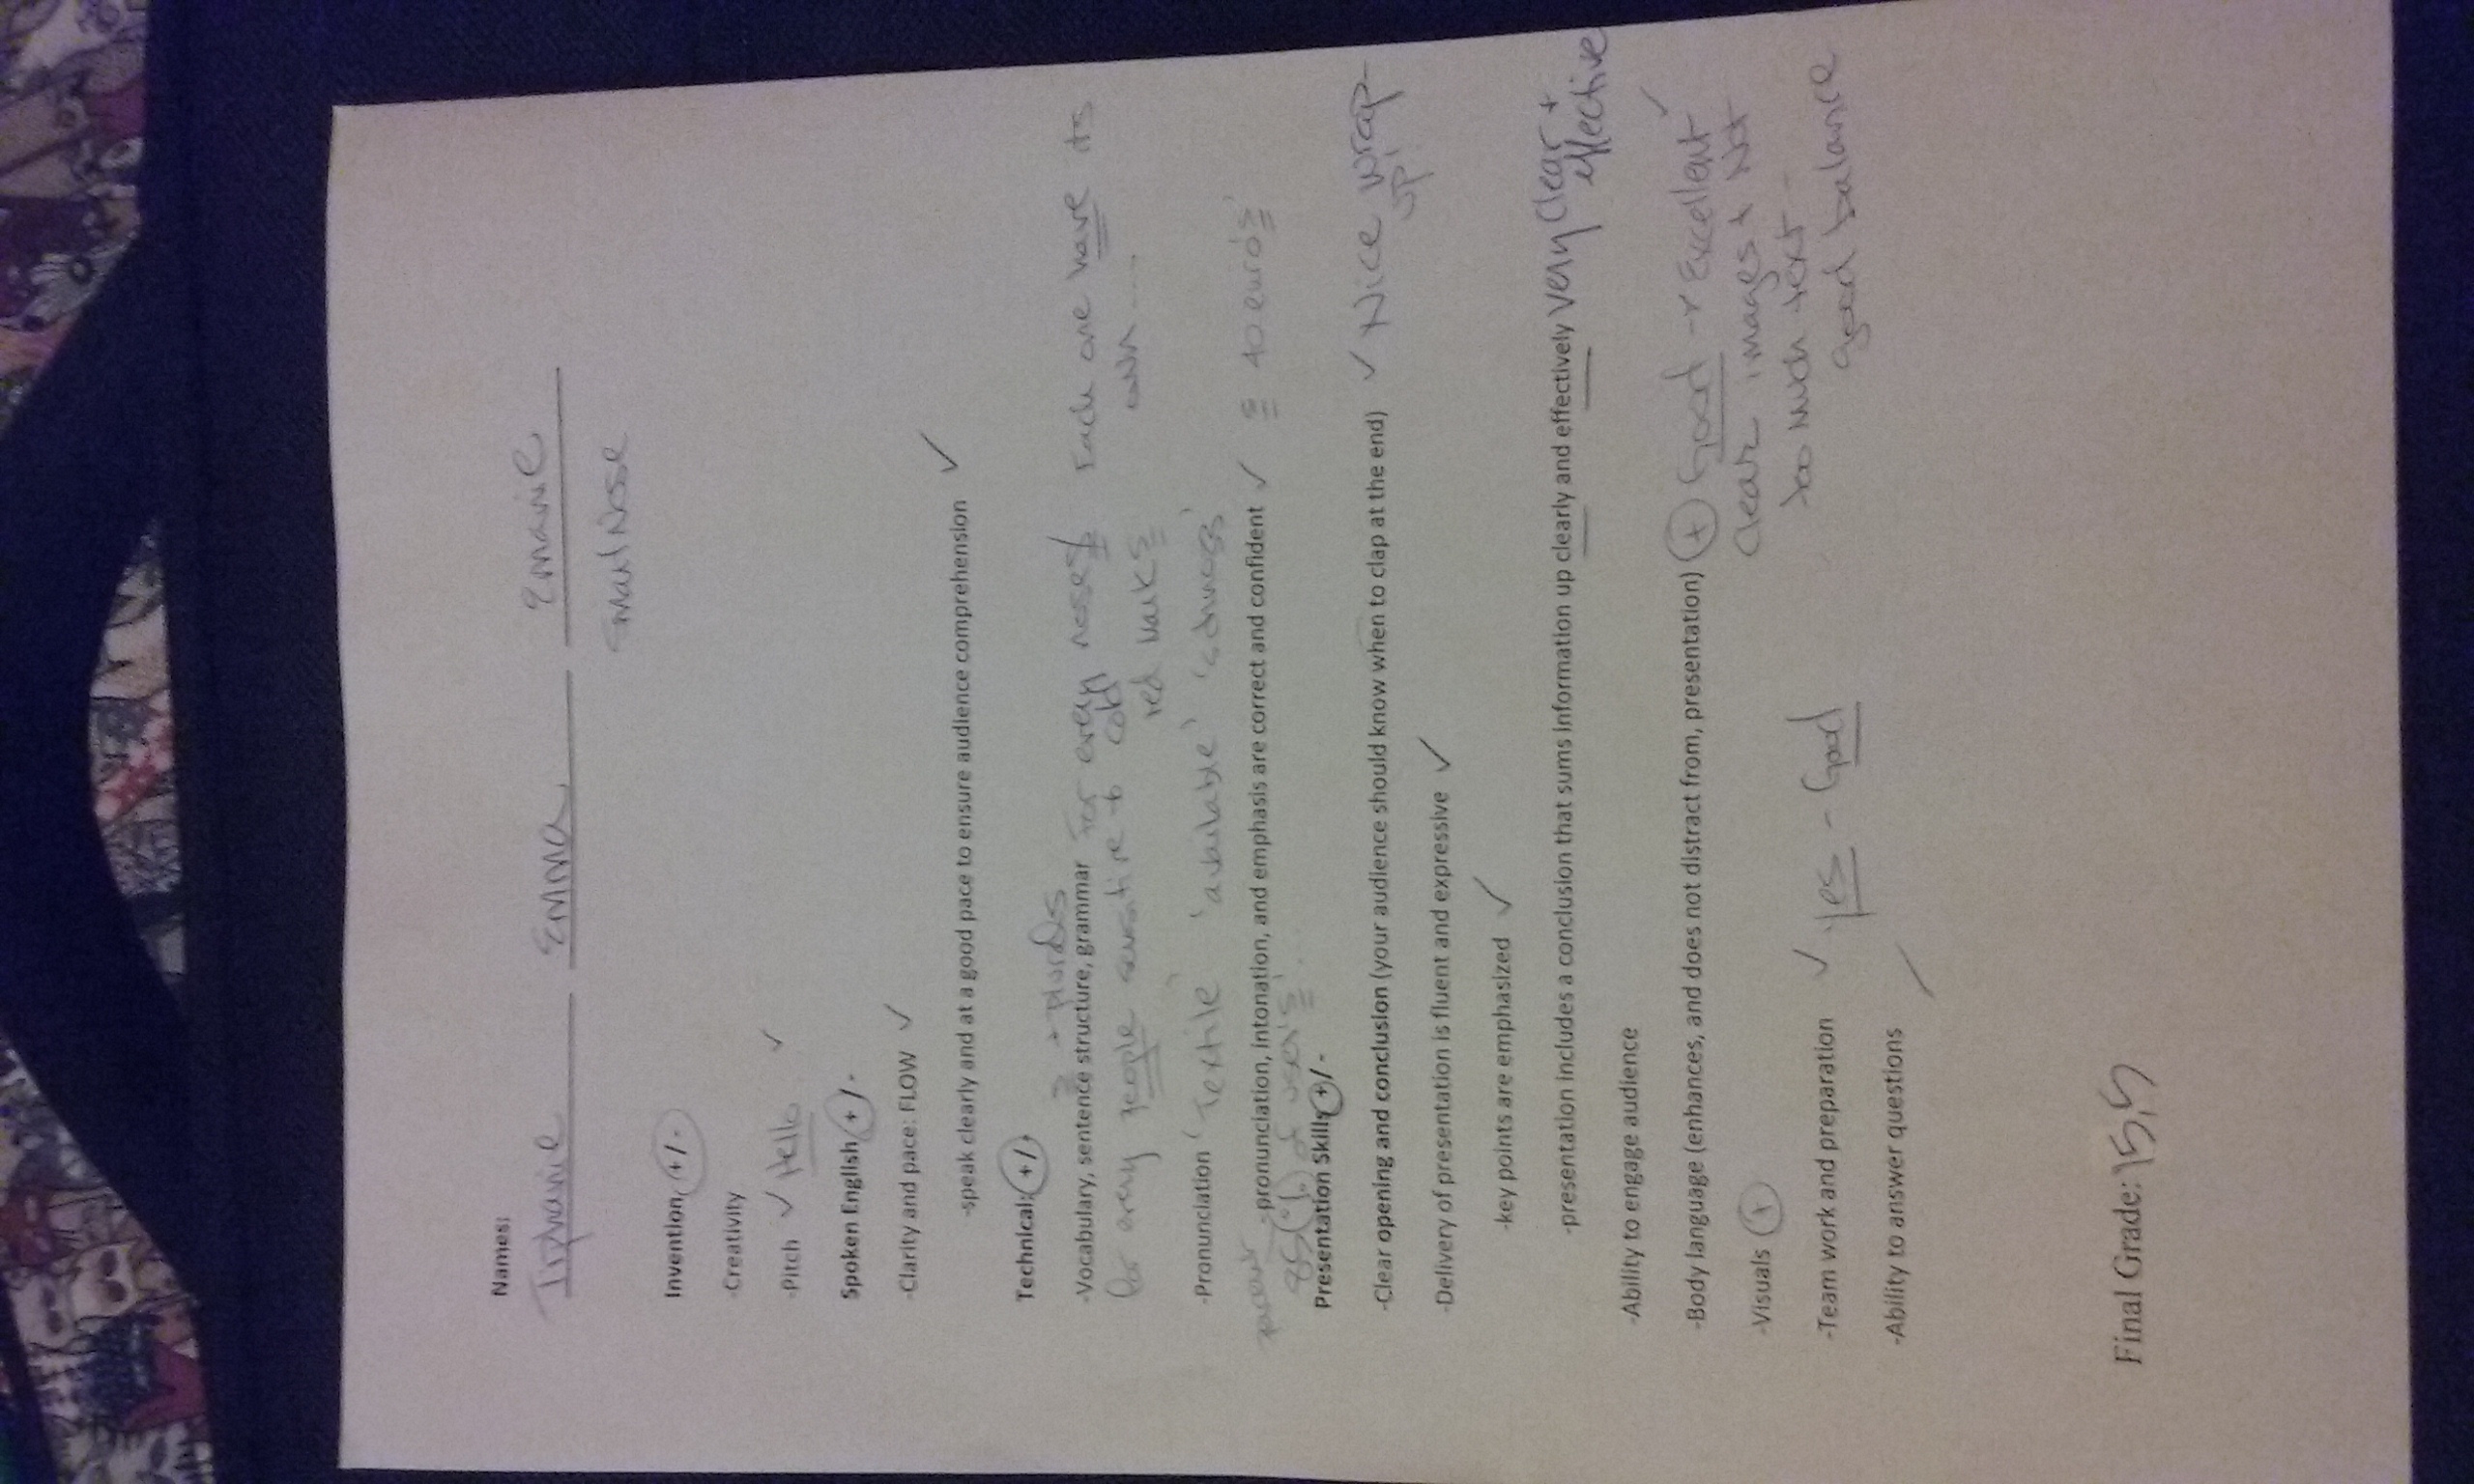 Names:
Tiphanie Emma Emanie
Invention, + / -
-Creativity
-Pitch ✓ Hello ✓
Spoken English + / -
-Clarity and pace: FLOW ✓
-speak clearly and at a good pace to ensure audience comprehension ✓
Technical: + / -
+ plurals
-Vocabulary, sentence structure, grammar For every noses Each one have its
for every people sensitive to cold own ....
red marks
-Pronunciation 'Textile' 'available'
-pronunciation, intonation, and emphasis are correct and confident ✓ 40 euro's'
85(%) of user's'...
Presentation Skills + / -
-Clear opening and conclusion (your audience should know when to clap at the end) ✓ Nice wrap-
up!
-Delivery of presentation is fluent and expressive ✓
-key points are emphasized ✓
-presentation includes a conclusion that sums information up clearly and effectively very clear +
effective
-Ability to engage audience
-Body language (enhances, and does not distract from, presentation) + Good → Excellent ✓
-Visuals + clear images + Not
too much text -
-Team work and preparation ✓ yes - Good good balance
-Ability to answer questions
Final Grade: 15,5